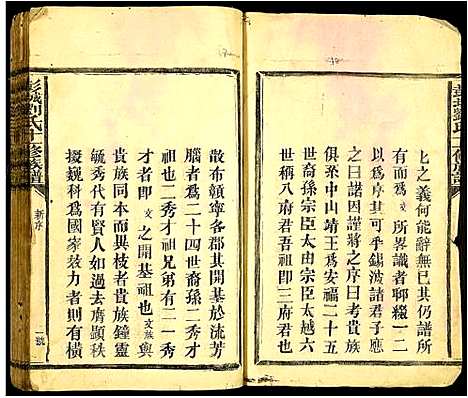 上之義何能辭無已其仍譜所
有而為文所畧識者聊綴一二
以為序其可乎錫波諸君子應
之曰諾因謹將之序曰考貴族
俱宗中山靖王為安福二十五
世裔孫宗臣太由宗臣太越六
世稱八府君吾祖即三府君也
散布贛寧各郡其開基於流芳
腦者為二十四世裔孫二秀才
祖也二秀才祖兄弟有二一秀
才者即文之開基祖也文族與
貴族同本而異枝者貴族鐘靈
毓秀代有賢人如過去膺顯秩
掇巍科為國家效力者則有橫
彭城劉氏十修族譜
新序
一號